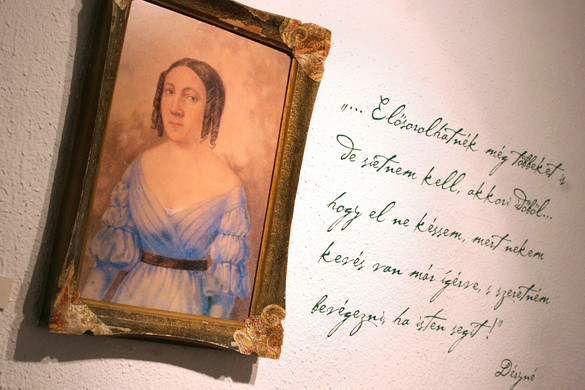 „... Elősorolhatnék még többeket is
de sietnem kell, akkori időből...
hogy el ne késsem, mert nekem
kevés van már ígérve, s szeretném
bevégezni, ha isten segít!"
Déryné